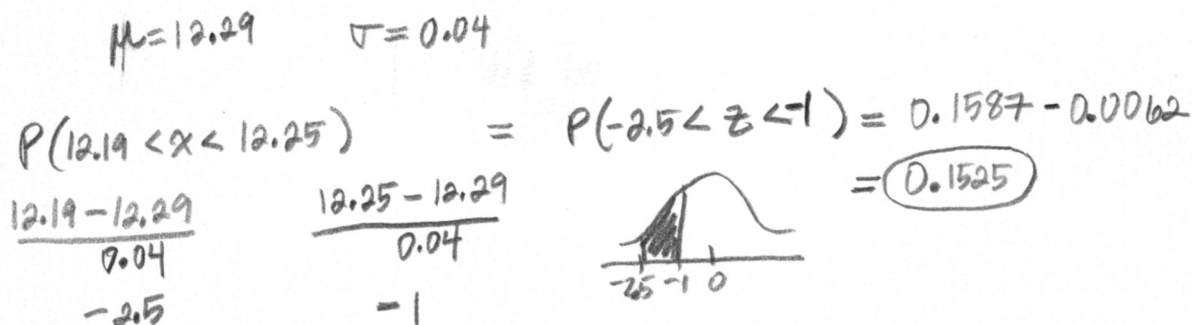 μ=12.29 σ=0.04
P(12.19 <x< 12.25) = P(-2.5< z <-1) = 0.1587 - 0.0062
= 0.1525
12.19-12.29 12.25-12.29
0.04 0.04
-2.5 -1
-2.5 -1 0